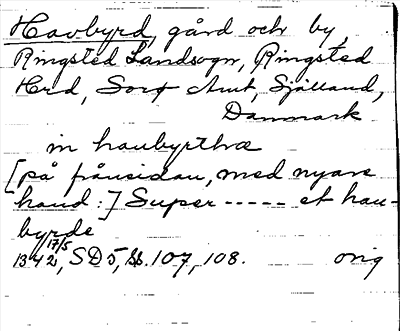 Havbyrd, gård och by,
Ringsted Landsogn, Ringsted
Hrd, Sorø Amt, Sjælland,
Danmark
in haubyrthæ
[på frånsidan, med nyare
hand:] Super ----- et hau-
byrde
1342 17/5, SD 5, s. 107, 108. orig